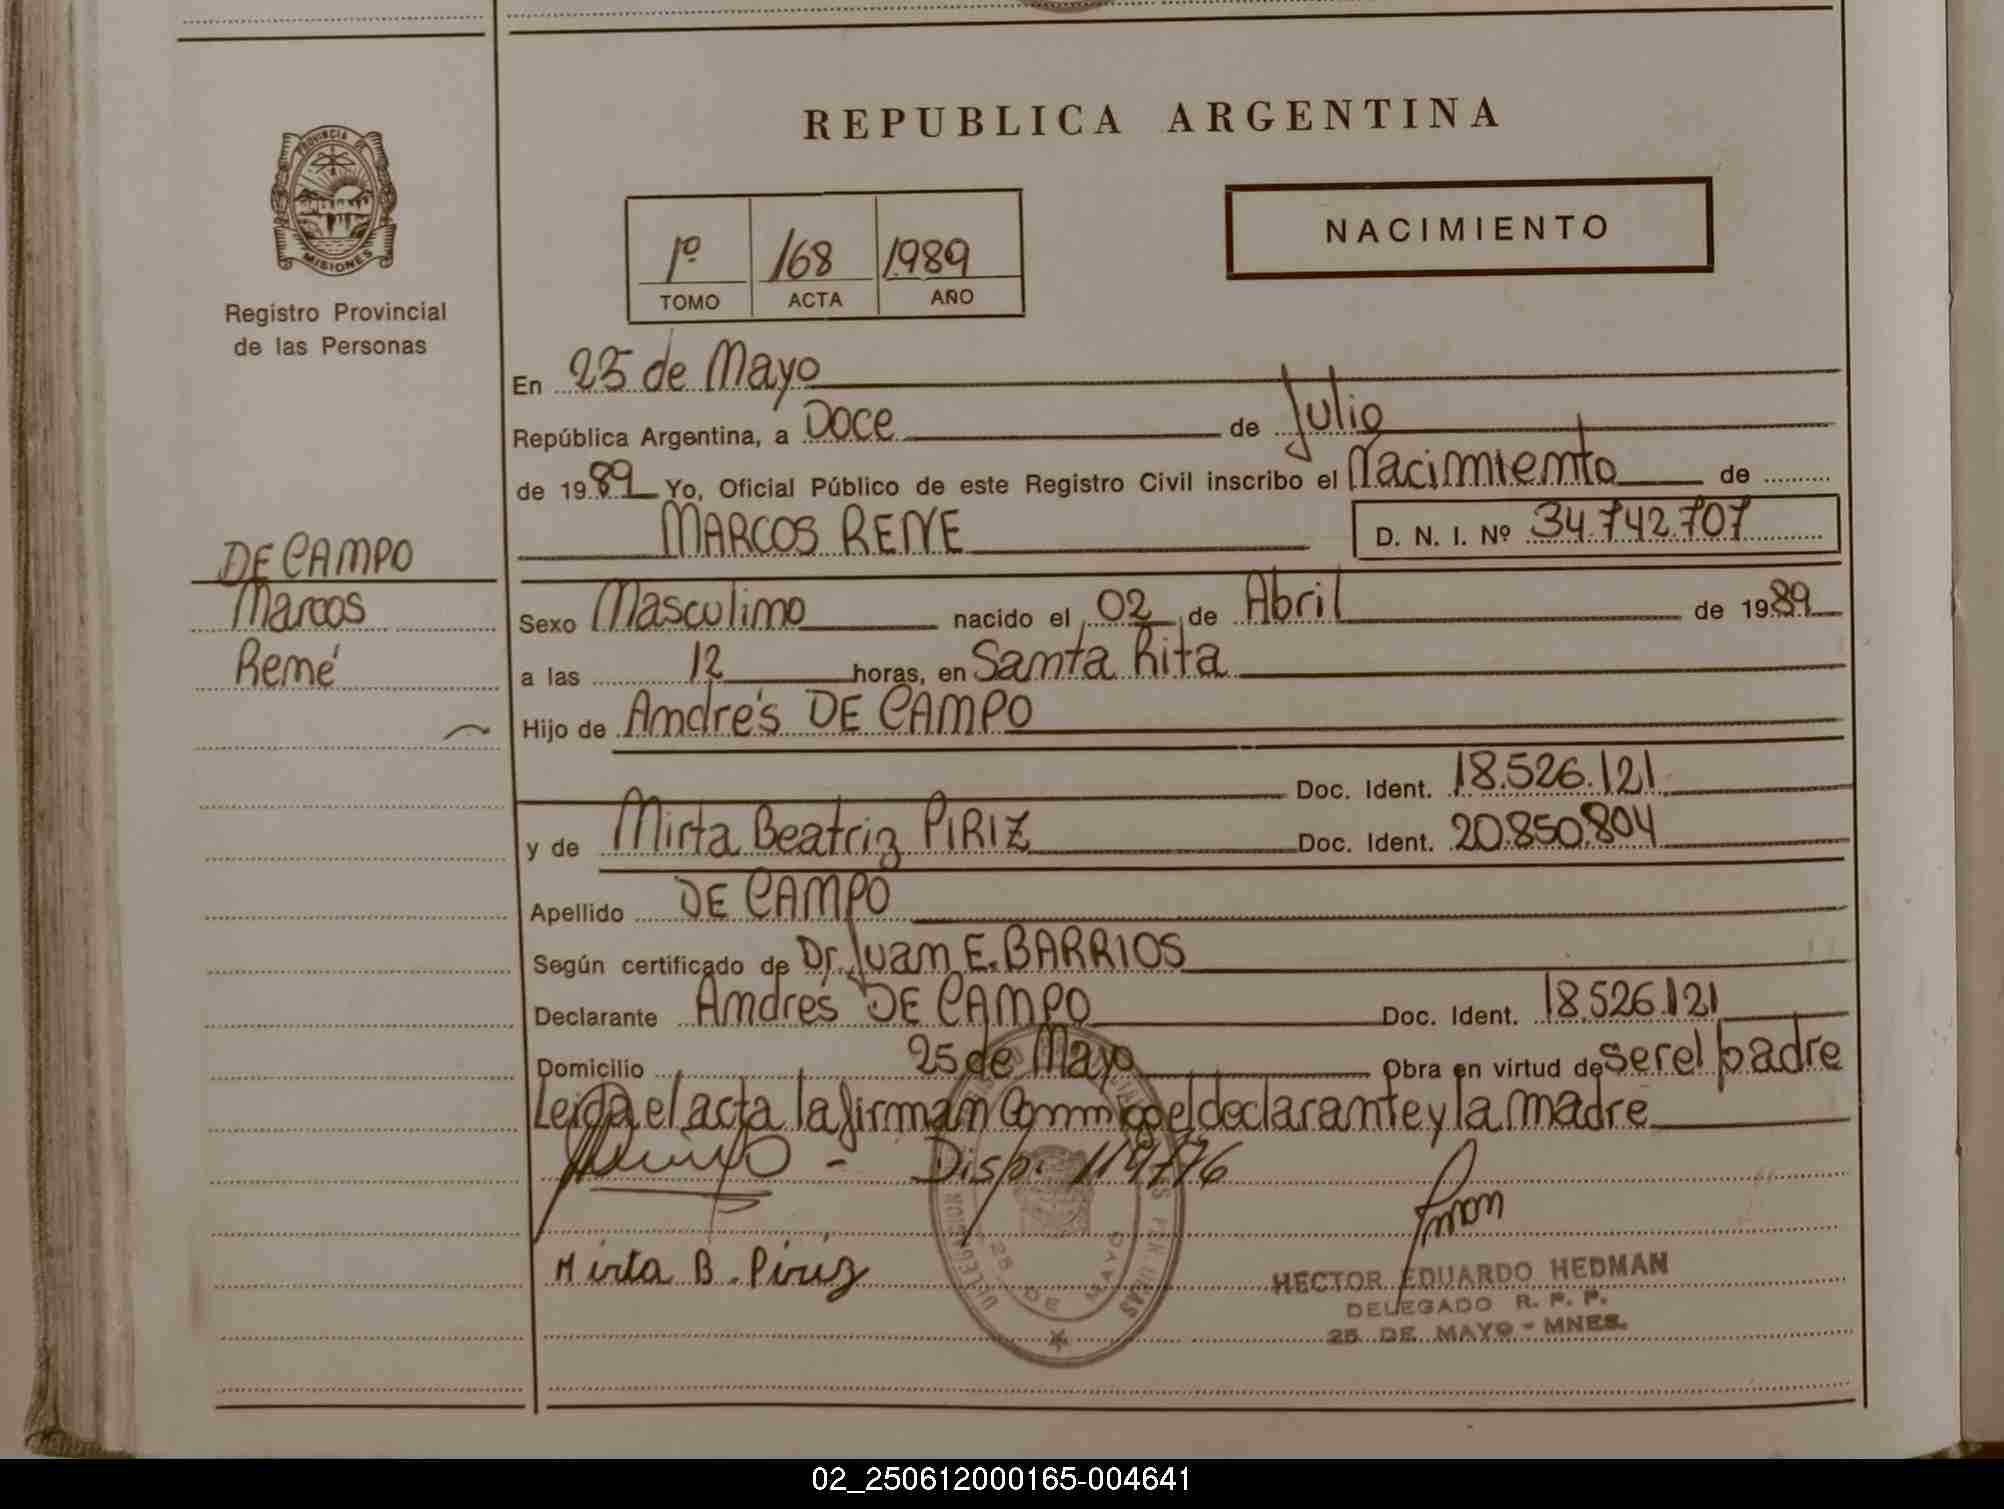 REPUBLICA ARGENTINA
PROVINCIA DE
MISIONES
Registro Provincial
de las Personas
NACIMIENTO
1º 168 1989
TOMO ACTA AÑO
En 25 de Mayo
República Argentina, a Doce de Julio
de 1989 Yo, Oficial Público de este Registro Civil inscribo el Nacimiento de
MARCOS RENE D. N. I. Nº 34.742.707
DE CAMPO
Marcos
René
Sexo Masculino nacido el 02 de Abril de 1989
a las 12 horas, en Santa Rita
Hijo de Andrés DE CAMPO
Doc. Ident. 18.526.121
y de Mirta Beatriz PIRIZ Doc. Ident. 20.850.804
Apellido DE CAMPO
Según certificado de Dr. Juan E. BARRIOS
Declarante Andrés DE CAMPO Doc. Ident. 18.526.121
Domicilio 25 de Mayo Obra en virtud de ser el padre
Leida el acta la firman Conmigo el declarante y la madre
Disp.
Mirta B. Piriz
25 DE MAYO
HECTOR EDUARDO HEDMAN
DELEGADO R. P. P.
25 DE MAYO - MNES.
02_250612000165-004641